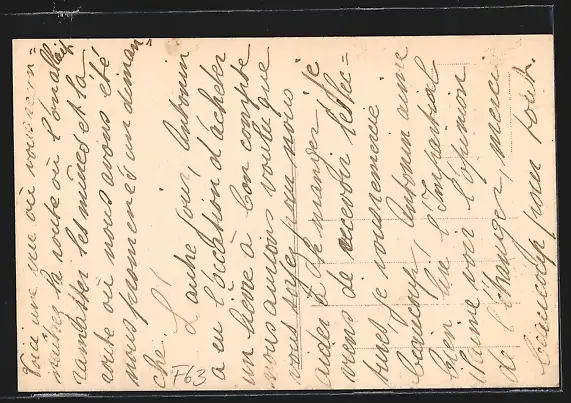 Voici une vue où vous recon=
naitrez la route où l'on allait
ramasser les mûres et la
route où nous avons été
nous promener un diman=
che. L'autre jour, Antonin
a eu l'occasion d'acheter
un lièvre à bon compte
nous aurions voulu que
vous soyez pour nous
aider à le manger. Je
viens de recevoir les lec=
tures je vous remercie
beaucoup, Antonin aime
bien lire l'Impartial
il aime voir l'opinion
de l'étranger, merci
beaucoup pour tout.
F63